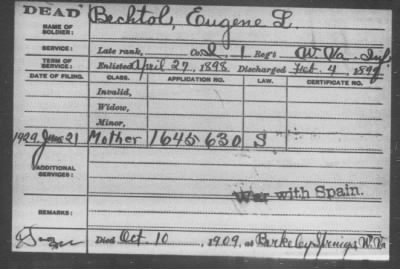 DEAD
NAME OF SOLDIER: Bechtol, Eugene L.
SERVICE: Late rank, Co. I, 1 Reg't W. Va. Inf.
TERM OF SERVICE: Enlisted April 27, 1898. Discharged Feb. 4, 1899
DATE OF FILING. CLASS. APPLICATION NO. LAW. CERTIFICATE NO.
Invalid,
Widow,
Minor,
1929 June 21 Mother 1645630 S
ADDITIONAL SERVICES:
War with Spain.
REMARKS:
Died Oct. 10, 1909, at Berkeley Springs W. Va